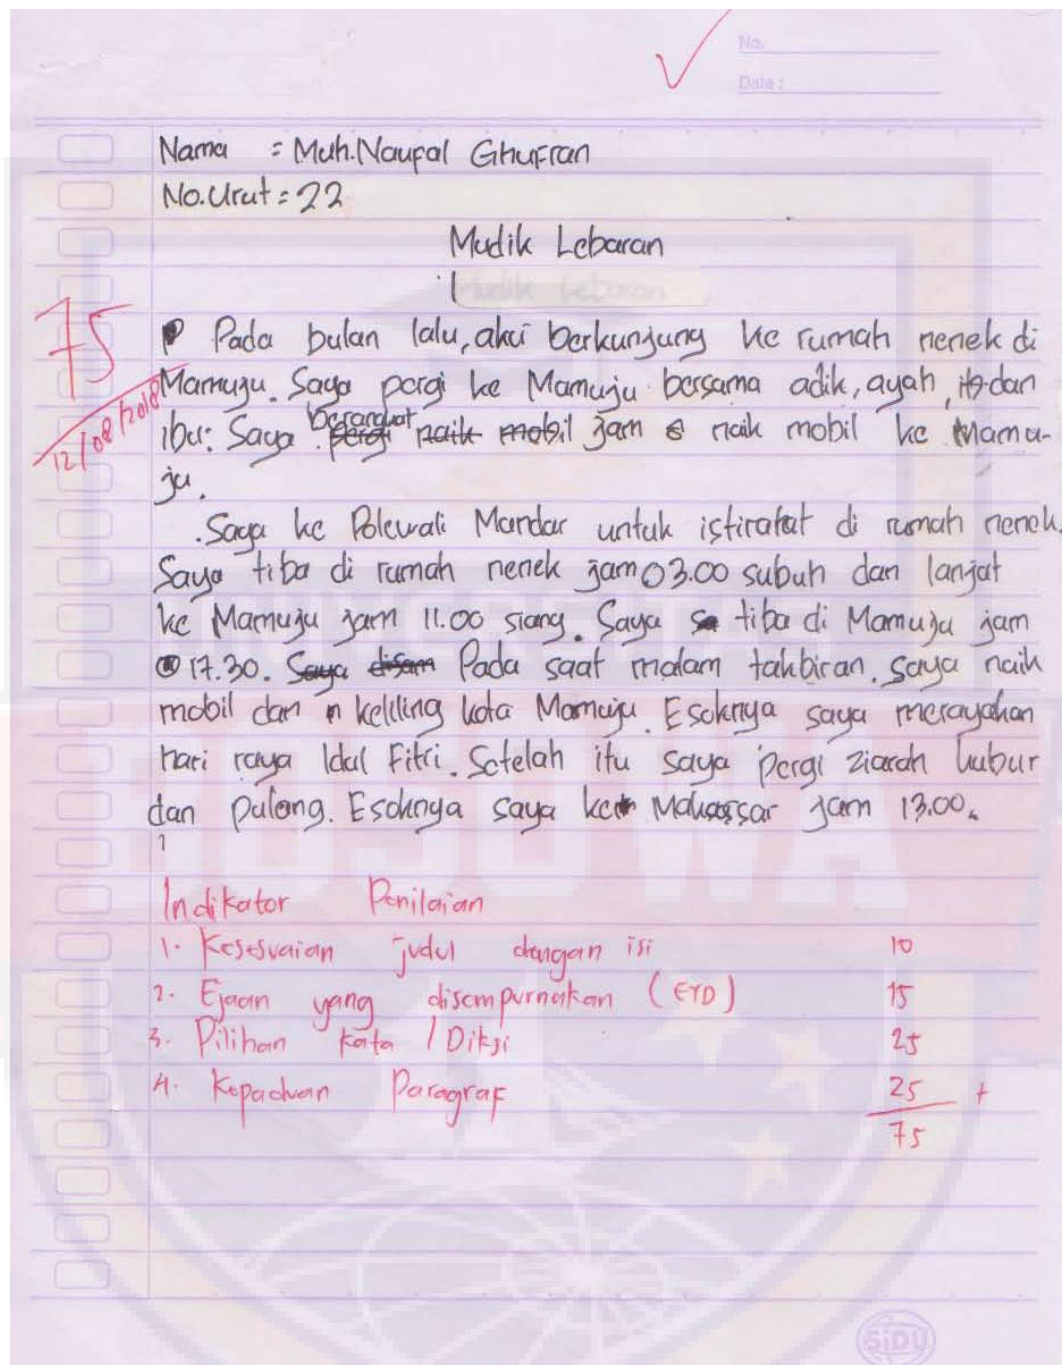 No.
Date :
Nama = Muh.Naufal Ghufran
No.Urut = 22
Mudik Lebaran
75
12/08/2018
Pada bulan lalu, aku berkunjung ke rumah nenek di
Mamuju. Saya pergi ke Mamuju bersama adik, ayah, dan
ibu. Saya berangkat pergi naik mobil jam naik mobil ke Mamu-
ju.
Saya ke Polewali Mandar untuk istirahat di rumah nenek.
Saya tiba di rumah nenek jam 03.00 subuh dan lanjat
ke Mamuju jam 11.00 siang. Saya tiba di Mamuju jam
17.30. Saya disam Pada saat malam takbiran. saya naik
mobil dan keliling kota Mamuju. Esoknya saya merayakan
hari raya Idul Fitri. Setelah itu saya pergi ziarah kubur
dan pulang. Esoknya saya ke Makassar jam 13.00.
Indikator Penilaian
1. Kesesuaian judul dengan isi 10
2. Ejaan yang disempurnakan (EYD) 15
3. Pilihan kata / Diksi 25
4. Kepaduan Paragraf 25 +
75
BOSOWA
SiDU